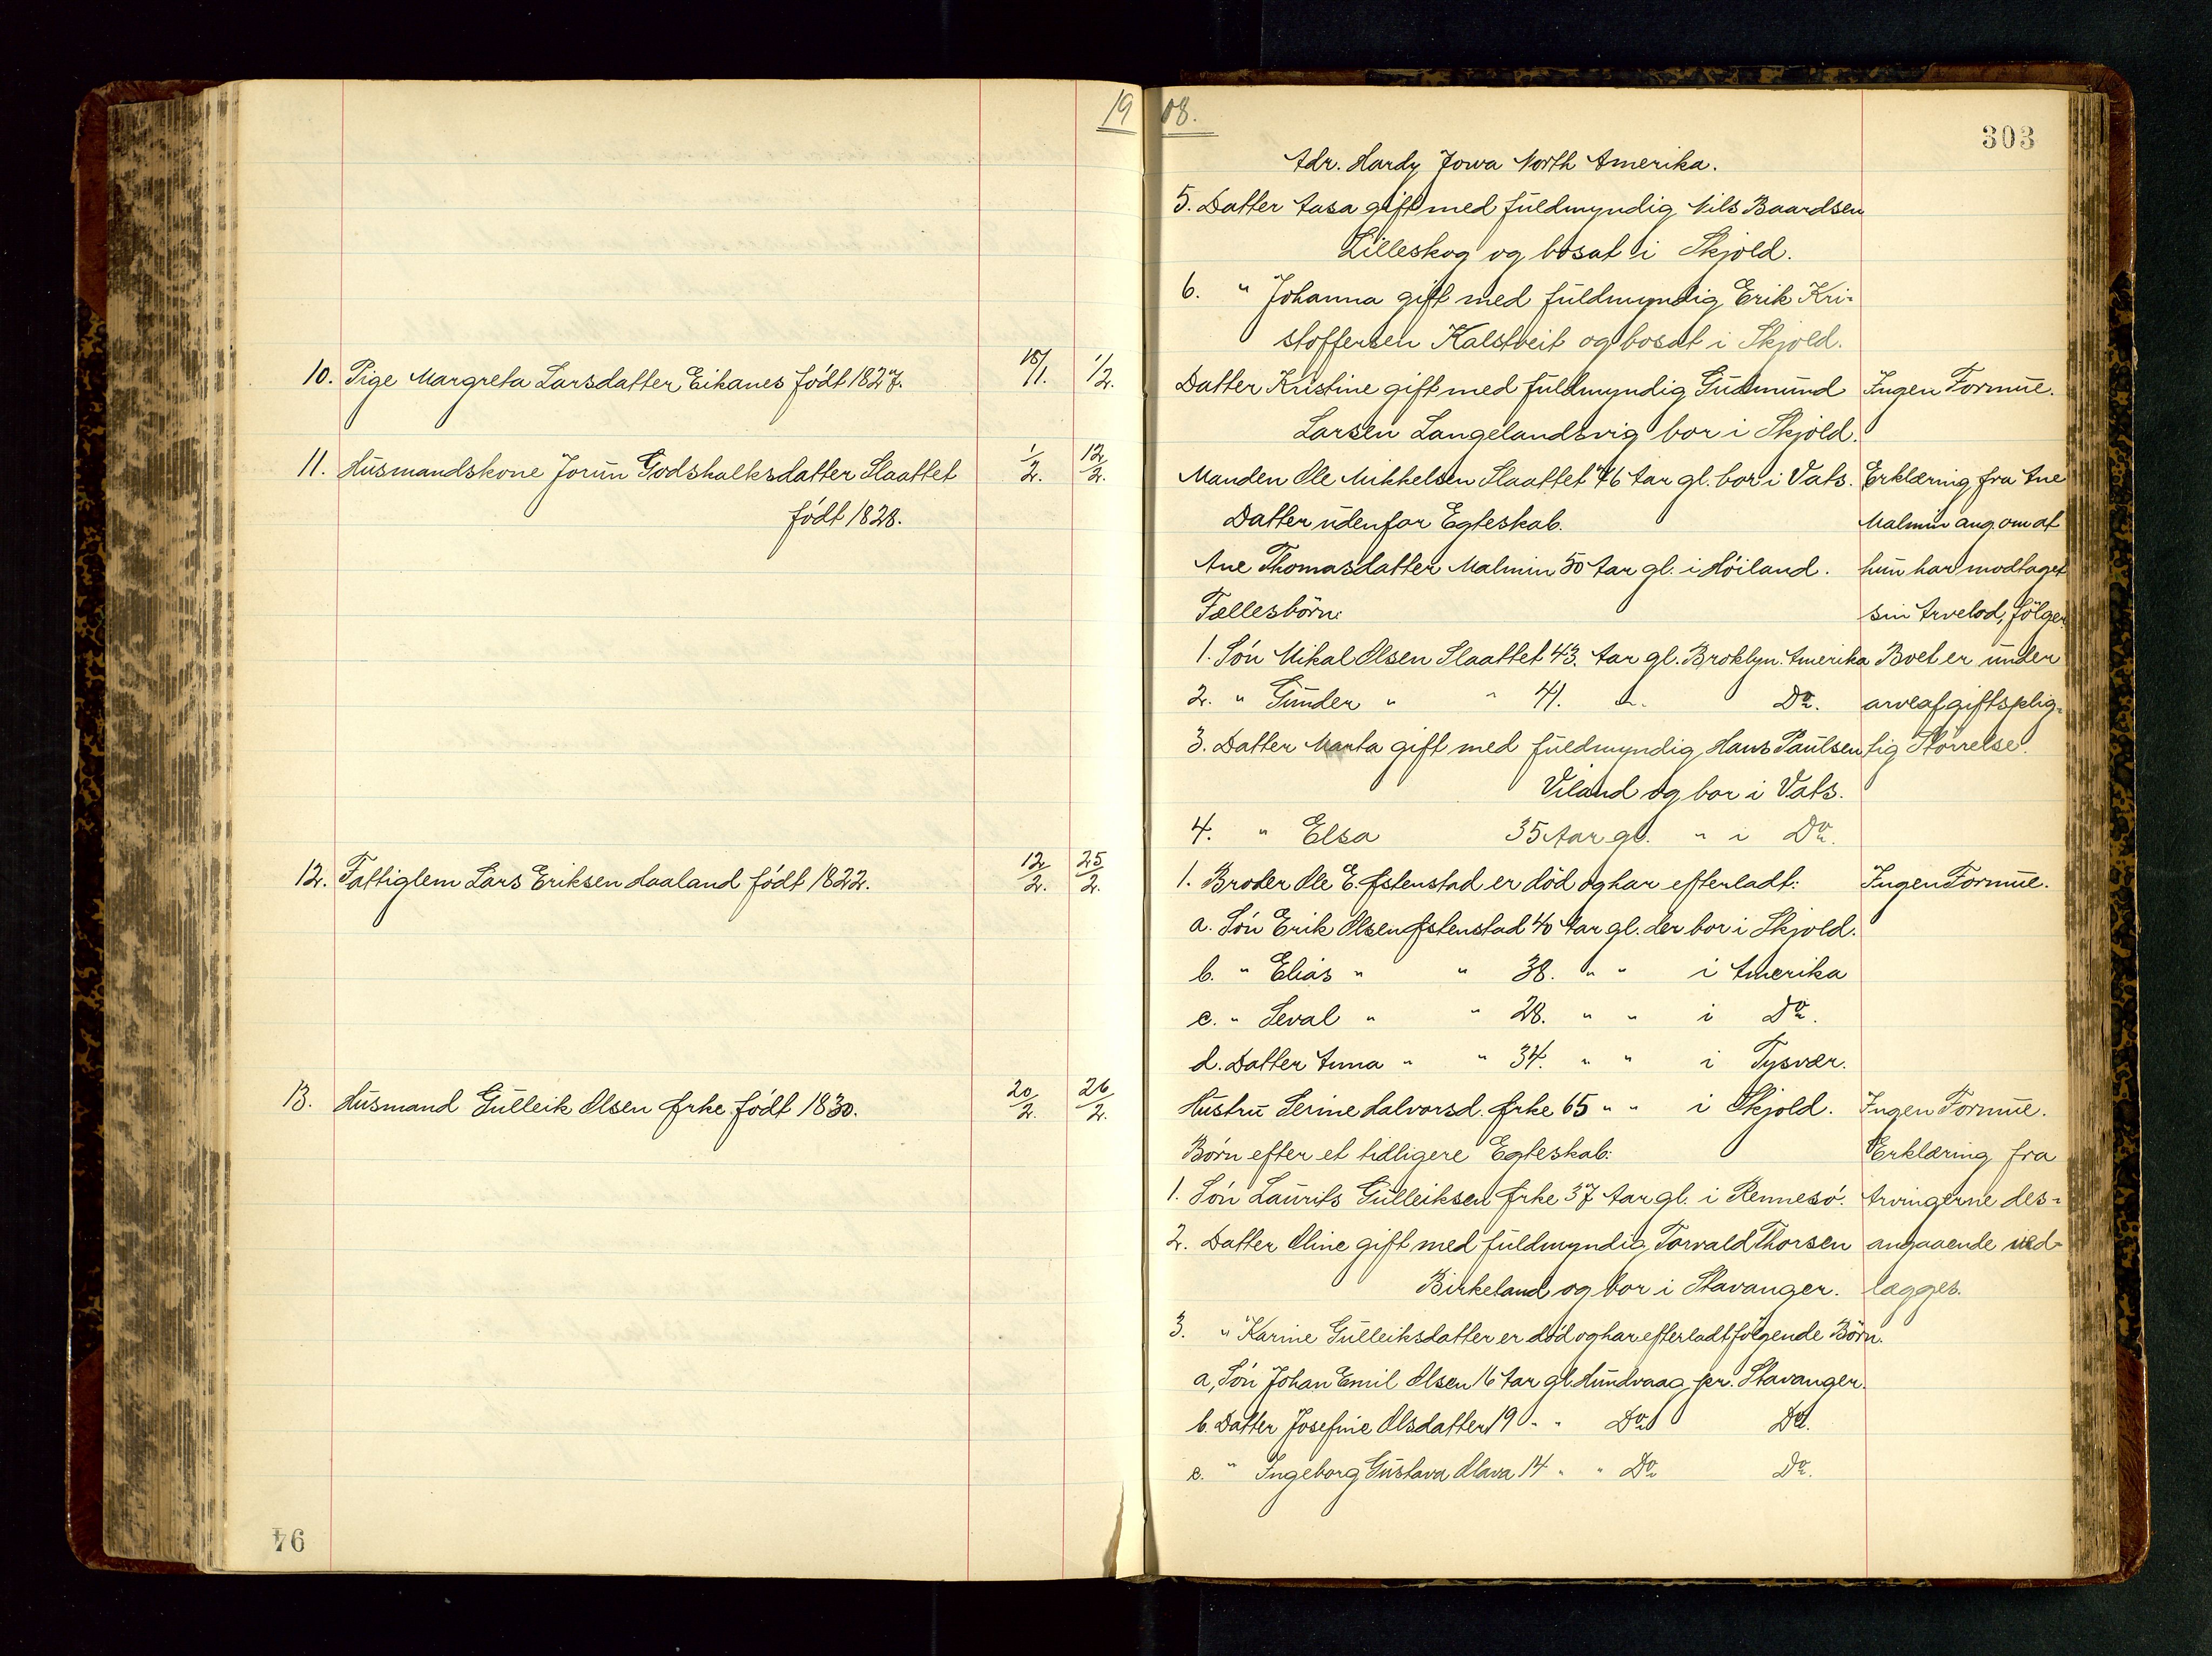 1908.
303
Adr. Hardy Jowa North Amerika.
5. Datter Aasa gift med fuldmyndig Nils Baardsen
Lilleskog og bosat i Skjold.
6. " Johanna gift med fuldmyndig Erik Kri-
stoffersen Kalstveit og bosat i Skjold.
10. Pige Margreta Larsdatter Eikanes født 1827. 18/1. 1/2. Datter Kristine gift med fuldmyndig Gudmund Ingen Formue.
Larsen Langelandsvig bor i Skjold.
11. Husmandskone Jorun Godskalksdatter Slaattet 1/2. 12/2. Manden Ole Mikkelsen Slaattet 76 Aar gl. bor i Vats. Erklæring fra Ane
født 1828. Datter udenfor Egteskab. Malmin ang. om at
Ane Thomasdatter Malmin 50 Aar gl. i Høiland. hun har modtaget
Fællesbørn: sin Arvelod, følger.
1. Søn Mikal Olsen Slaattet 43. Aar gl. Broklyn. Amerika Boet er under
2. " Gunder " " 41. " Do. arveafgiftsplig-
3. Datter Marta gift med fuldmyndig Hans Paulsen tig Størrelse.
Viland og bor i Vats.
4. " Elsa 35 Aar gl. " i Do.
12. Fattiglem Lars Eriksen Haaland født 1822. 12/2. 25/2. 1. Broder Ole E. Østenstad er død og har efterladt: Ingen Formue.
a. Søn Erik Olsen Østenstad 40 Aar gl. der bor i Skjold.
b. " Elias " " 38. " " i Amerika
c. " Seval " " 28. " " i Do.
d. Datter Anna " " 34. " " i Tysvær.
13. Husmand Gulleik Olsen Ørke født 1830. 20/2. 26/2. Hustru Serine Halvorsd. Ørke 65 " " i Skjold. Ingen Formue.
Børn efter et tidligere Egteskab: Erklæring fra
1. Søn Laurits Gulleiksen Ørke 37 Aar gl. i Rennesø. Arvingerne des-
2. Datter Oline gift med fuldmyndig Torvald Thorsen angaaende ved-
Birkeland og bor i Stavanger. lægges.
3. " Karine Gulleiksdatter er død og har efterladt følgende Børn.
a, Søn Johan Emil Olsen 16 Aar gl. Hundvaag pr. Stavanger.
b. Datter Josefine Olsdatter 19 " " Do. Do.
c. " Ingeborg Gustava Olava 14 " " Do. Do.
94